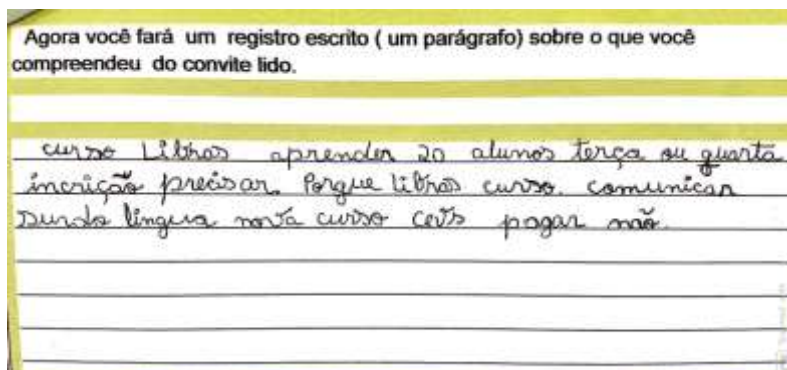 Agora você fará um registro escrito ( um parágrafo) sobre o que você
compreendeu do convite lido.
curso Libras aprender 20 alunos terça ou quarta
incrição precisar. Porque libras curso. comunicar
surdo lingua nova curso pagar não.